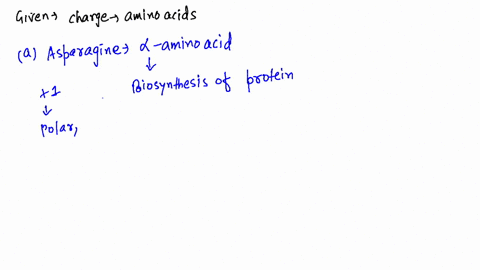 Given→ charge→ amino acids
(a) Asparagine→ α-amino acid
↓
+1 Biosynthesis of protein
↓
polar,